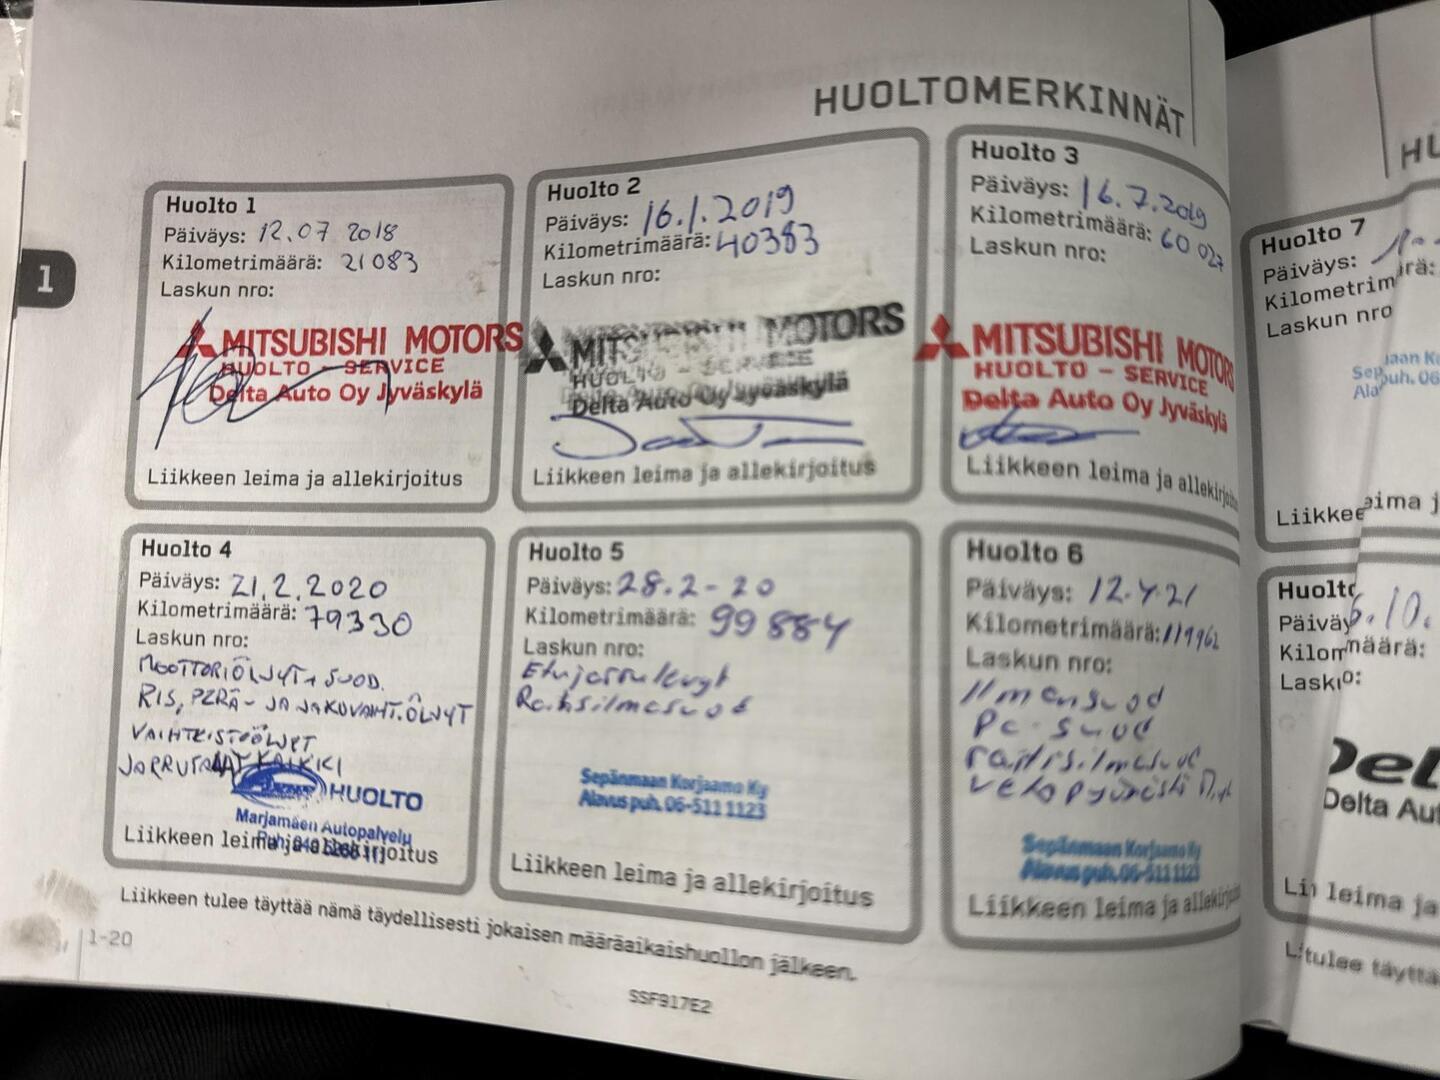 HUOLTOMERKINNÄT
1
Huolto 1
Päiväys: 12.07 2018
Kilometrimäärä: 21083
Laskun nro:
MITSUBISHI MOTORS
HUOLTO - SERVICE
Delta Auto Oy Jyväskylä
Liikkeen leima ja allekirjoitus
Huolto 2
Päiväys: 16.1.2019
Kilometrimäärä: 40383
Laskun nro:
MITSUBISHI MOTORS
HUOLTO - SERVICE
Delta Auto Oy Jyväskylä
Liikkeen leima ja allekirjoitus
Huolto 3
Päiväys: 16.7.2019
Kilometrimäärä: 60 027
Laskun nro:
MITSUBISHI MOTORS
HUOLTO - SERVICE
Delta Auto Oy Jyväskylä
Liikkeen leima ja allekirjoitus
Huolto 4
Päiväys: 21.2.2020
Kilometrimäärä: 79330
Laskun nro:
MOOTTORIÖLJYT + SUOD.
RIS, PERÄ- JA JAKOVAIHT.ÖLJYT
VAIHTEISTOÖLJYT
JARRUT KAIKKI
HUOLTO
Marjamäen Autopalvelu
Liikkeen leima ja allekirjoitus
Huolto 5
Päiväys: 28.2-20
Kilometrimäärä: 99884
Laskun nro:
Etujarrulevyt
Raitisilmasuod
Sepänmaan Korjaamo Ky
Alavus puh. 06-511 1123
Liikkeen leima ja allekirjoitus
Huolto 6
Päiväys: 12.4.21
Kilometrimäärä: 119962
Laskun nro:
Ilmansuod
pa-suod
raitisilmasuod
vetopyörästö
Sepänmaan Korjaamo Ky
Alavus puh. 06-511 1123
Liikkeen leima ja allekirjoitus
Liikkeen tulee täyttää nämä täydellisesti jokaisen määräaikaishuollon jälkeen.
1-20
SSF917E2
HU
Huolto 7
Päiväys:
Kilometrim irä:
Laskun nro
Liikkee eima j
Huolto
Päiväy 6.10.
Kilom määrä:
Lasku o:
Del
Delta Aut
Lii leima ja
tulee täyttä